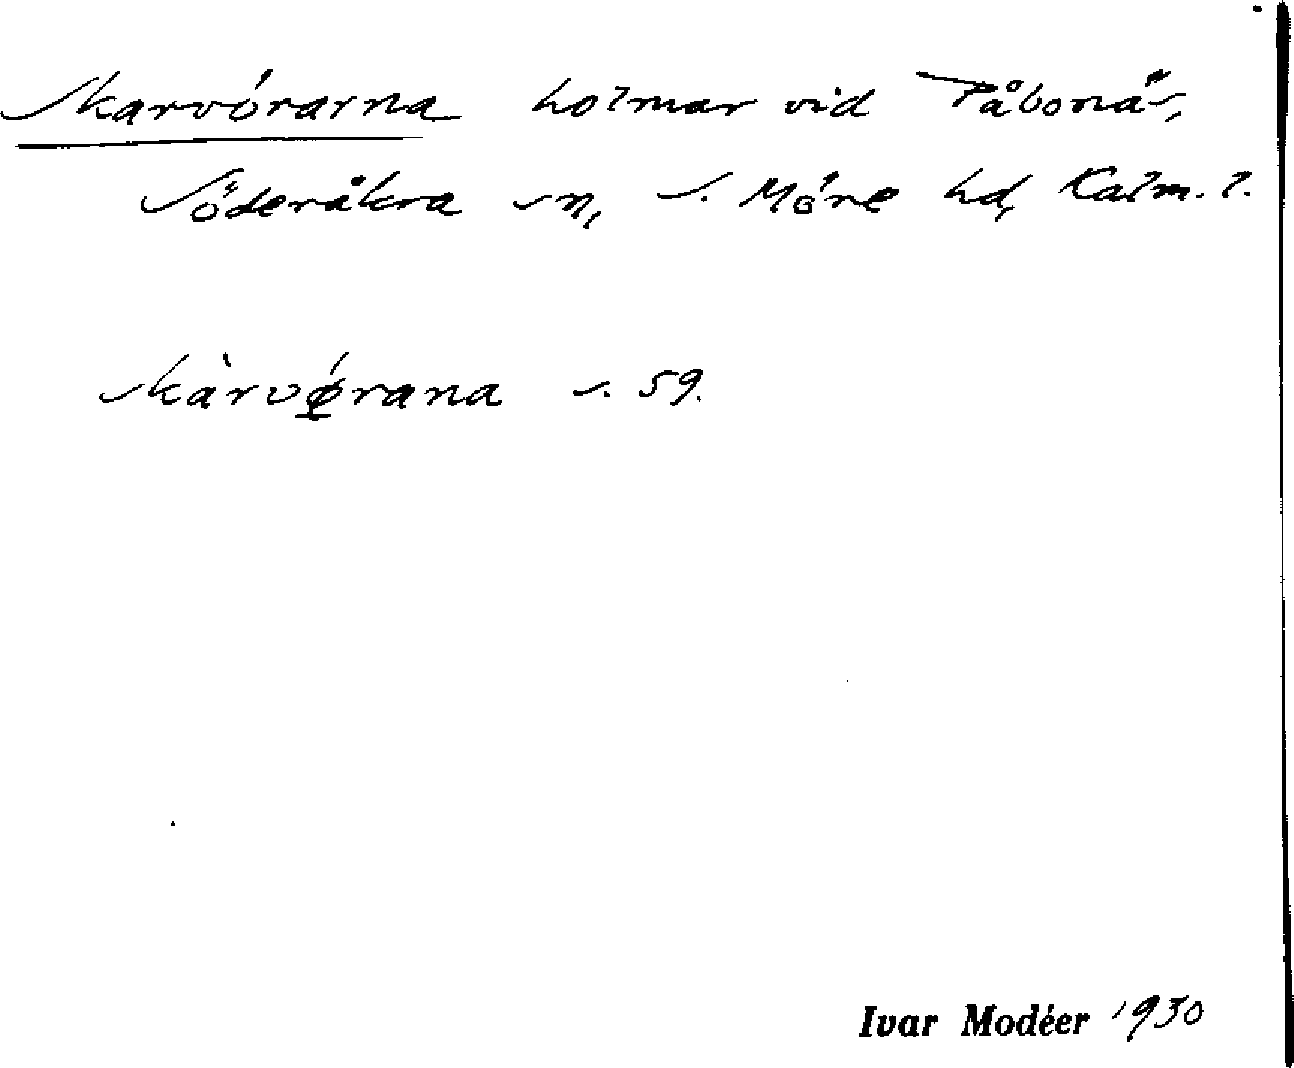 Skarvörarna holmar vid Påbonäs,
Söderåkra sn, S. Möre hd, Kalm. l.
skàrvǿ̱rana s. 59.
Ivar Modéer 1930